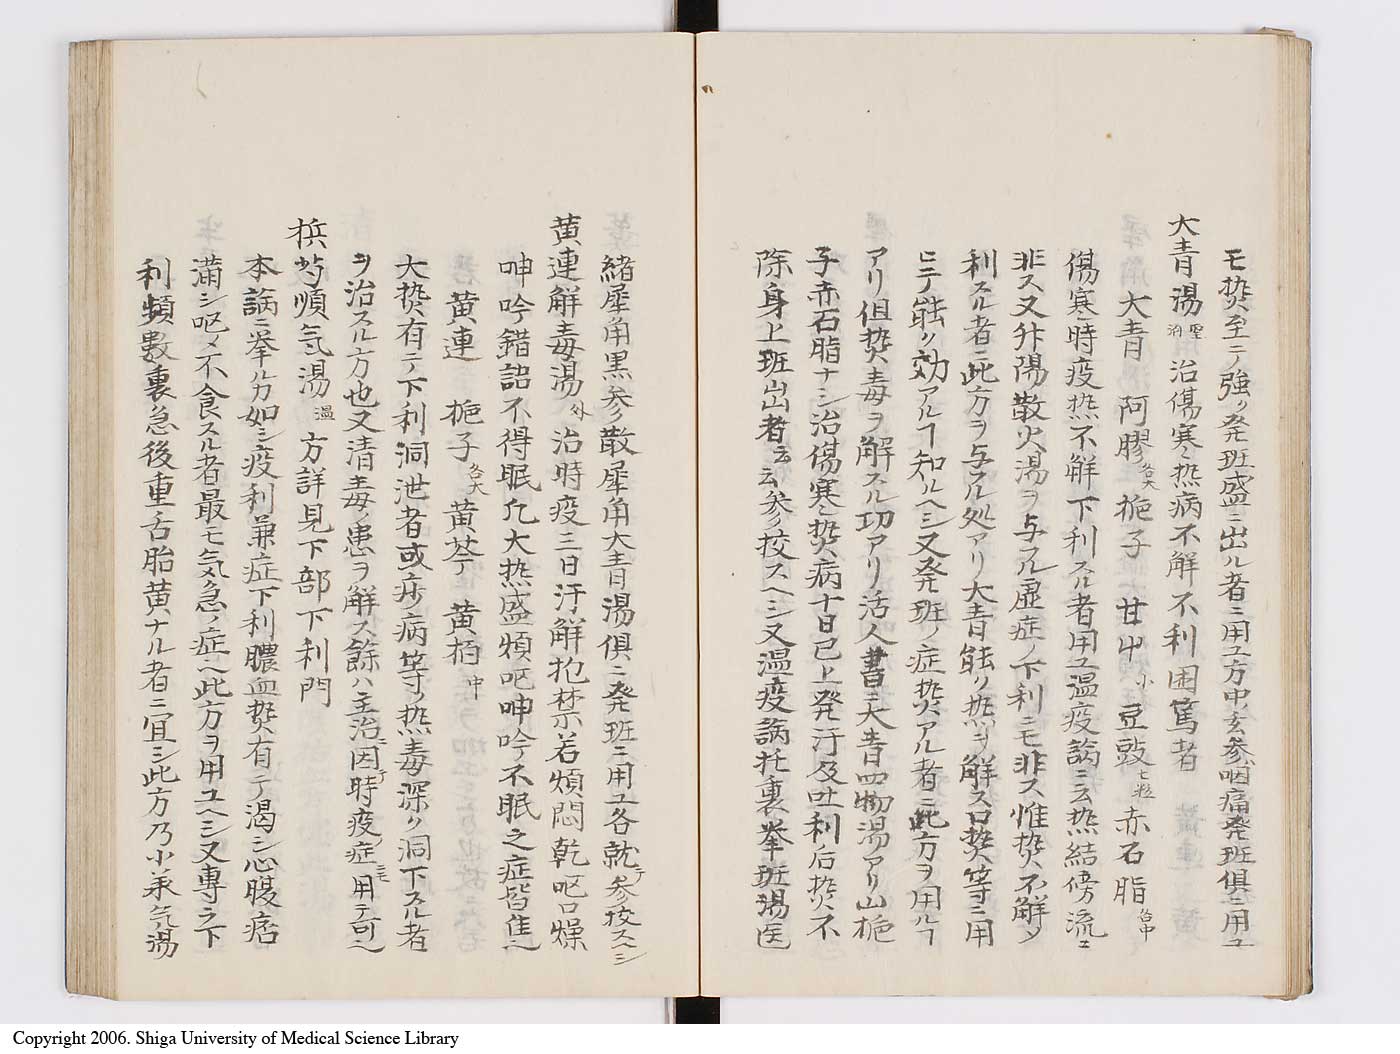 モ焚至テ強ク発班盛ニ出ル者ニ用ユ方中玄参咽痛発班倶ニ用ユ
大青湯 聖済 治傷寒熱病不解不利困篤者
大青 阿膠 各大 梔子 甘艸 小 豆豉 七粒 赤石脂 各中
傷寒時疫熱不解下利スル者用ユ温疫論ニ云熱結傍流ニ
非ス又升陽散火湯ヲ与フル虚症ノ下利ニモ非ス惟焚不解〆
利スル者ニ此方ヲ与ル処アリ大青能ク熱ヲ解ス口焚等ニ用
ヒテ能ク効アルヿ知ルヘシ又発班ノ症焚アル者ニ此方ヲ用ルヿ
アリ但焚毒ヲ解スル功アリ活人書ニ大青四物湯アリ山梔
子赤石脂ナシ治傷寒焚病十日已上発汗及吐利后焚不
除身上班出者云云参ノ挍スヘシ又温疫論托裏挙班湯医
緒犀角黒参散犀角大青湯倶ニ発班ニ用ユ各就テ参挍スヘシ
黄連解毒湯 外 治時疫三日汗解抱禁若煩悶乾呕口燥
呻吟錯語不得眠凢大熱盛煩呕呻吟不眠之症皆佳
黄連 梔子 各大 黄芩 黄栢 中
大焚有テ下利洞泄者或痧病等ノ熱毒深ク洞下スル者
ヲ治スル方也又清毒ノ患ヲ解ス餘ハ主治ニ因テ時疫ノ症ニモ用テ可
梹芍順气湯 温 方詳見下部下利門
本論ニ挙ル如シ疫利兼症下利膿血焚有テ渇シ心腹痞
満シ呕〆不食スル者最モ气急ノ症ヘ此方ヲ用ユヘシ又專ラ下
利頻數裏急後重舌胎黄ナル者ニ宜シ此方乃小承气湯
Copyright 2006. Shiga University of Medical Science Library